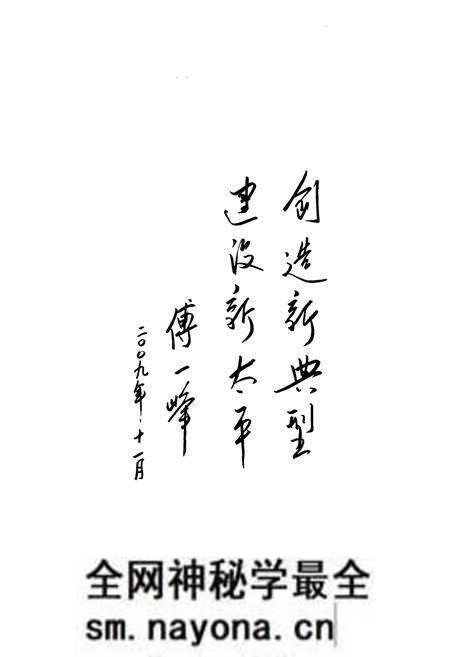 创造新典型
建设新太平
傅一峰
二〇〇九年·十一月
全网神秘学最全
sm.nayona.cn